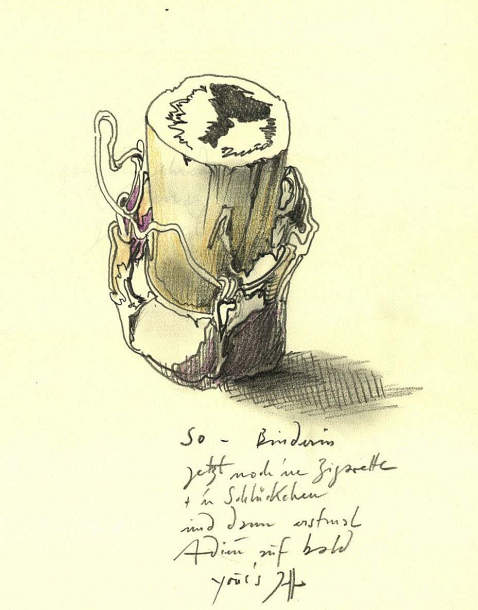 So - Binderin
jetzt noch 'ne Zigarette
+ 'n Schlückchen
und dann erstmal
Adieu auf bald
your's